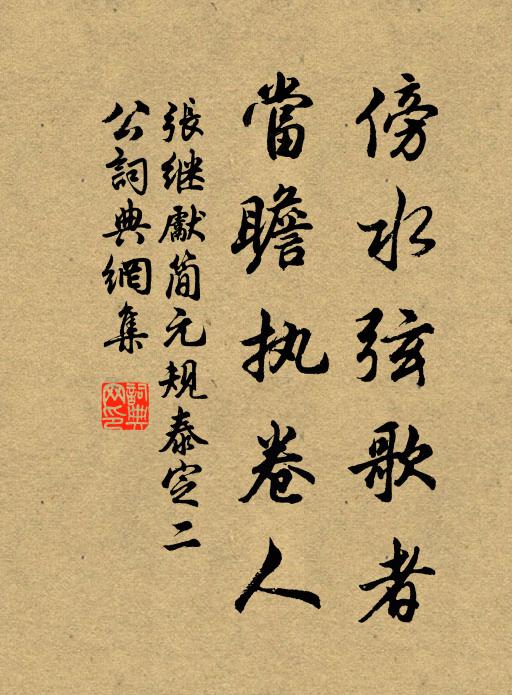 傍水弦歌者
當瞻执卷人
張继獻简元规泰定二
公詞典網集
詞典
网印